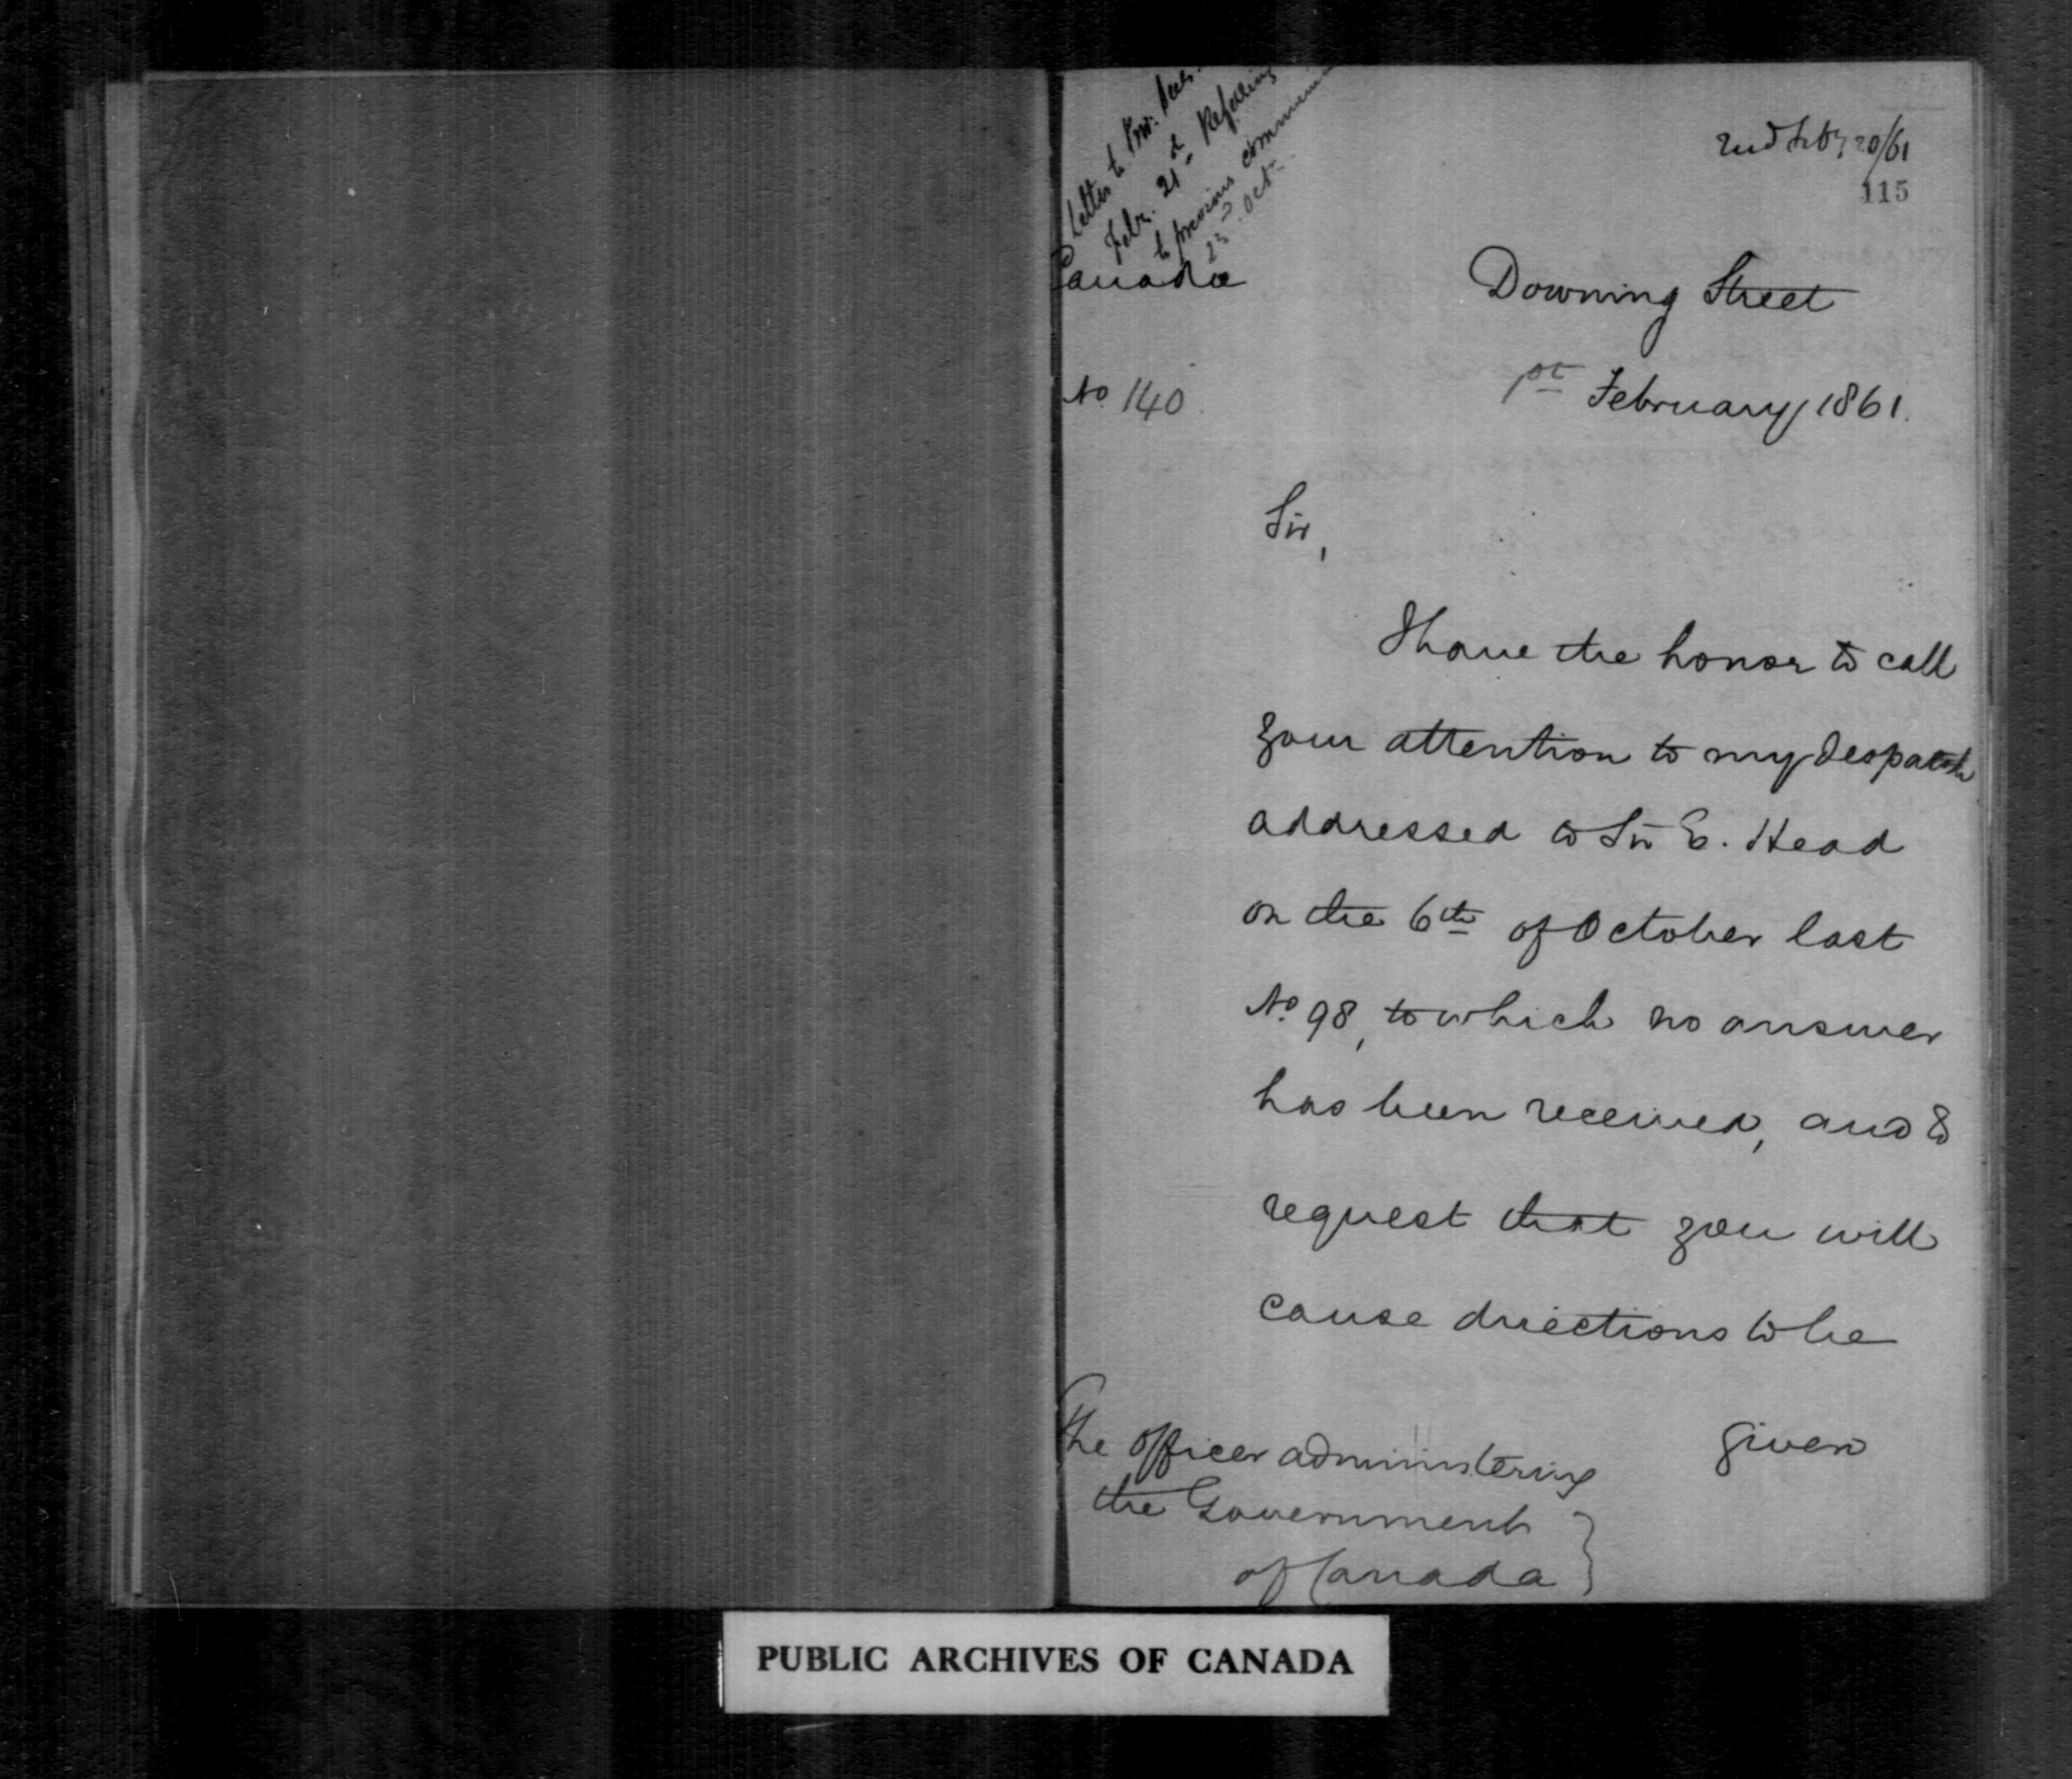 Letter to Prov. Secy.
Feby. 21st Referring
to previous commun
23d Oct.
recd Feby 20/61
115
Canada
Downing Street
No 140
1st February 1861.
Sir,
I have the honor to call
your attention to my despatch
addressed to Sir E. Head
on the 6th of October last
No. 98, to which no answer
has been received, and to
request that you will
cause directions to be
given
The Officer administering
the Government
of Canada
PUBLIC ARCHIVES OF CANADA